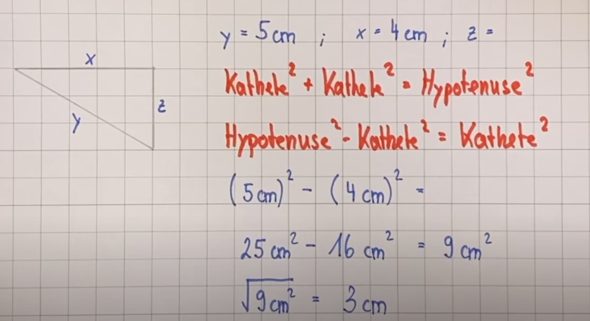 y = 5 cm ; x = 4 cm ; z =
x
z
y
Kathete² + Kathete² = Hypotenuse²
Hypotenuse² - Kathete² = Kathete²
(5 cm)² - (4 cm)² =
25 cm² - 16 cm² = 9 cm²
√9 cm² = 3 cm